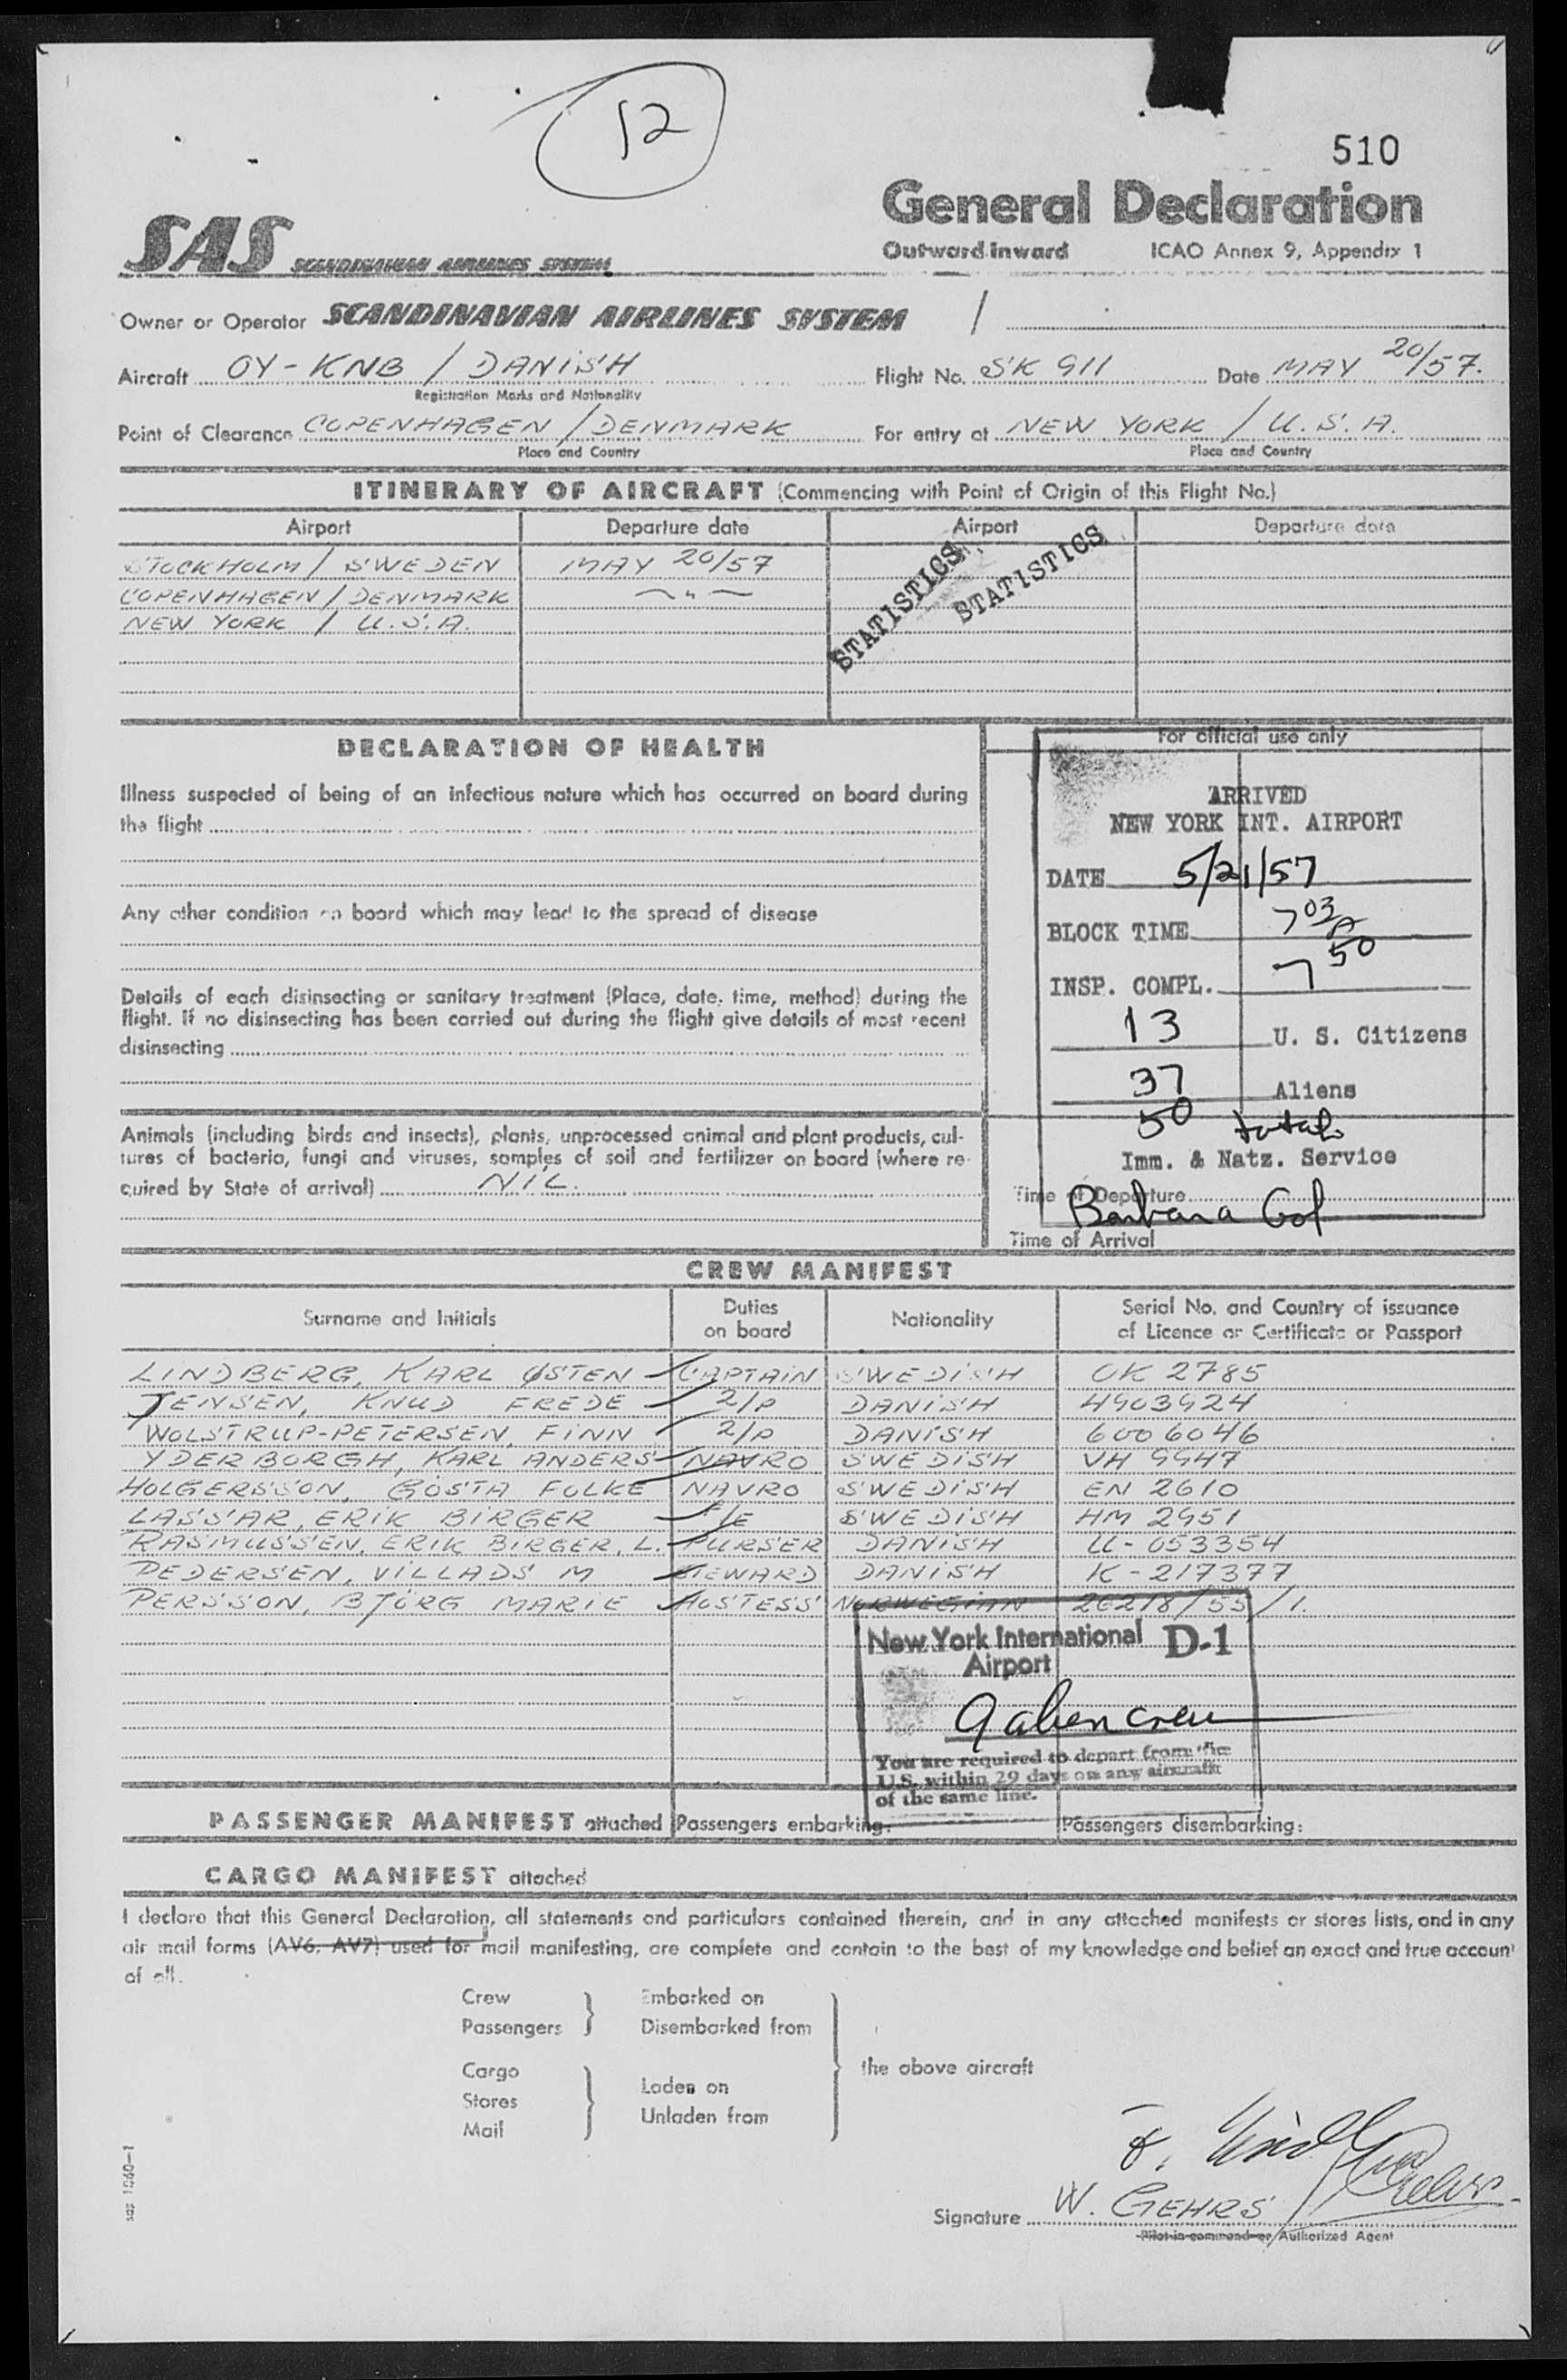 12
510
General Declaration
Outward-Inward ICAO Annex 9, Appendix 1
SAS SCANDINAVIAN AIRLINES SYSTEM
Owner or Operator SCANDINAVIAN AIRLINES SYSTEM /
Aircraft OY-KNB / DANISH Flight No. SK 911 Date MAY 20/57.
Registration Marks and Nationality
Point of Clearance COPENHAGEN / DENMARK For entry at NEW YORK / U.S.A.
Place and Country Place and Country
ITINERARY OF AIRCRAFT (Commencing with Point of Origin of this Flight No.)
Airport Departure date Airport Departure date
STOCKHOLM / SWEDEN MAY 20/57
COPENHAGEN / DENMARK —"—
NEW YORK / U.S.A.
STATISTICS STATISTICS
DECLARATION OF HEALTH
Illness suspected of being of an infectious nature which has occurred on board during
the flight
Any other condition on board which may lead to the spread of disease
Details of each disinsecting or sanitary treatment (Place, date, time, method) during the
flight. If no disinsecting has been carried out during the flight give details of most recent
disinsecting
Animals (including birds and insects), plants, unprocessed animal and plant products, cul-
tures of bacteria, fungi and viruses, samples of soil and fertilizer on board (where re-
quired by State of arrival) NIL.
For official use only
ARRIVED
NEW YORK INT. AIRPORT
DATE 5/21/57
BLOCK TIME 7 03 P
INSP. COMPL. 7 50
13 U. S. Citizens
37 Aliens
50 total
Imm. & Natz. Service
Time of Departure
Barbara Gol
Time of Arrival
CREW MANIFEST
Surname and Initials Duties on board Nationality Serial No. and Country of issuance of Licence or Certificate or Passport
LINDBERG, KARL ØSTEN CAPTAIN SWEDISH OK 2785
JENSEN, KNUD FREDE 2/P DANISH 4903924
WOLSTRUP-PETERSEN, FINN 2/P DANISH 6006046
YDERBORGH, KARL ANDERS NAVRO SWEDISH VH 9947
HOLGERSSON, GÖSTA FOLKE NAVRO SWEDISH EN 2610
LASSAR, ERIK BIRGER F/E SWEDISH HM 2951
RASMUSSEN, ERIK BIRGER, L. PURSER DANISH U-053354
PEDERSEN, VILLADS M STEWARD DANISH K-217377
PERSSON, BJÖRG MARIE HOSTESS NORWEGIAN 26218/55/1.
New York International D-1
Airport
9 alien crew
You are required to depart from the
U.S. within 29 days on any aircraft
of the same line.
PASSENGER MANIFEST attached Passengers embarking: Passengers disembarking:
CARGO MANIFEST attached
I declare that this General Declaration, all statements and particulars contained therein, and in any attached manifests or stores lists, and in any
air mail forms (AV6, AV7) used for mail manifesting, are complete and contain to the best of my knowledge and belief an exact and true account
of all.
Crew Embarked on
Passengers Disembarked from
the above aircraft
Cargo
Laden on
Stores
Unladen from
Mail
sas 1060—1
Signature W. GEHRS
Pilot-in-command or Authorized Agent